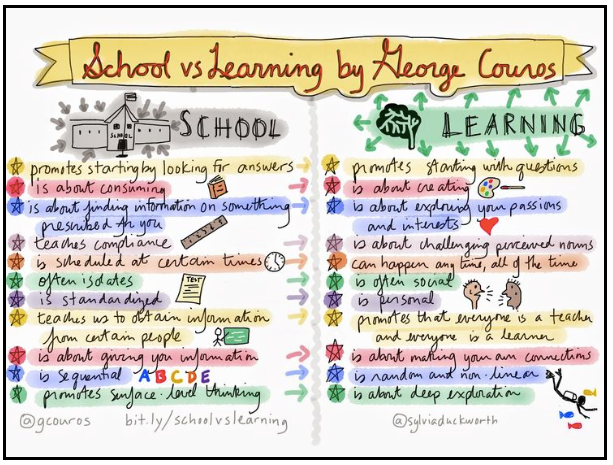 School vs Learning by George Couros
SCHOOL
SCHOOL
promotes starting by looking for answers
is about consuming
is about finding information on something
prescribed for you
teaches compliance
is scheduled at certain times
often isolates
is standardized
TEXT
teaches us to obtain information
from certain people
is about giving you information
is sequential ABCDE
promotes surface-level thinking
@gcouros bit.ly/schoolvslearning
LEARNING
promotes starting with questions
is about creating
is about exploring your passions
and interests
is about challenging perceived norms
can happen any time, all of the time
is often social
is personal
promotes that everyone is a teacher
and everyone is a learner
is about making your own connections
is random and non-linear
is about deep exploration
@sylviaduckworth